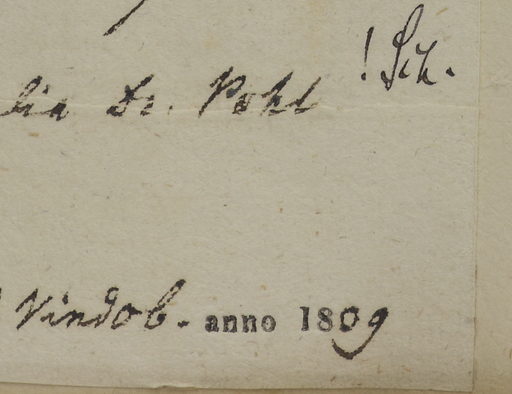 ! Sch.
lia Dr. Pohl
Vindob. anno 1809